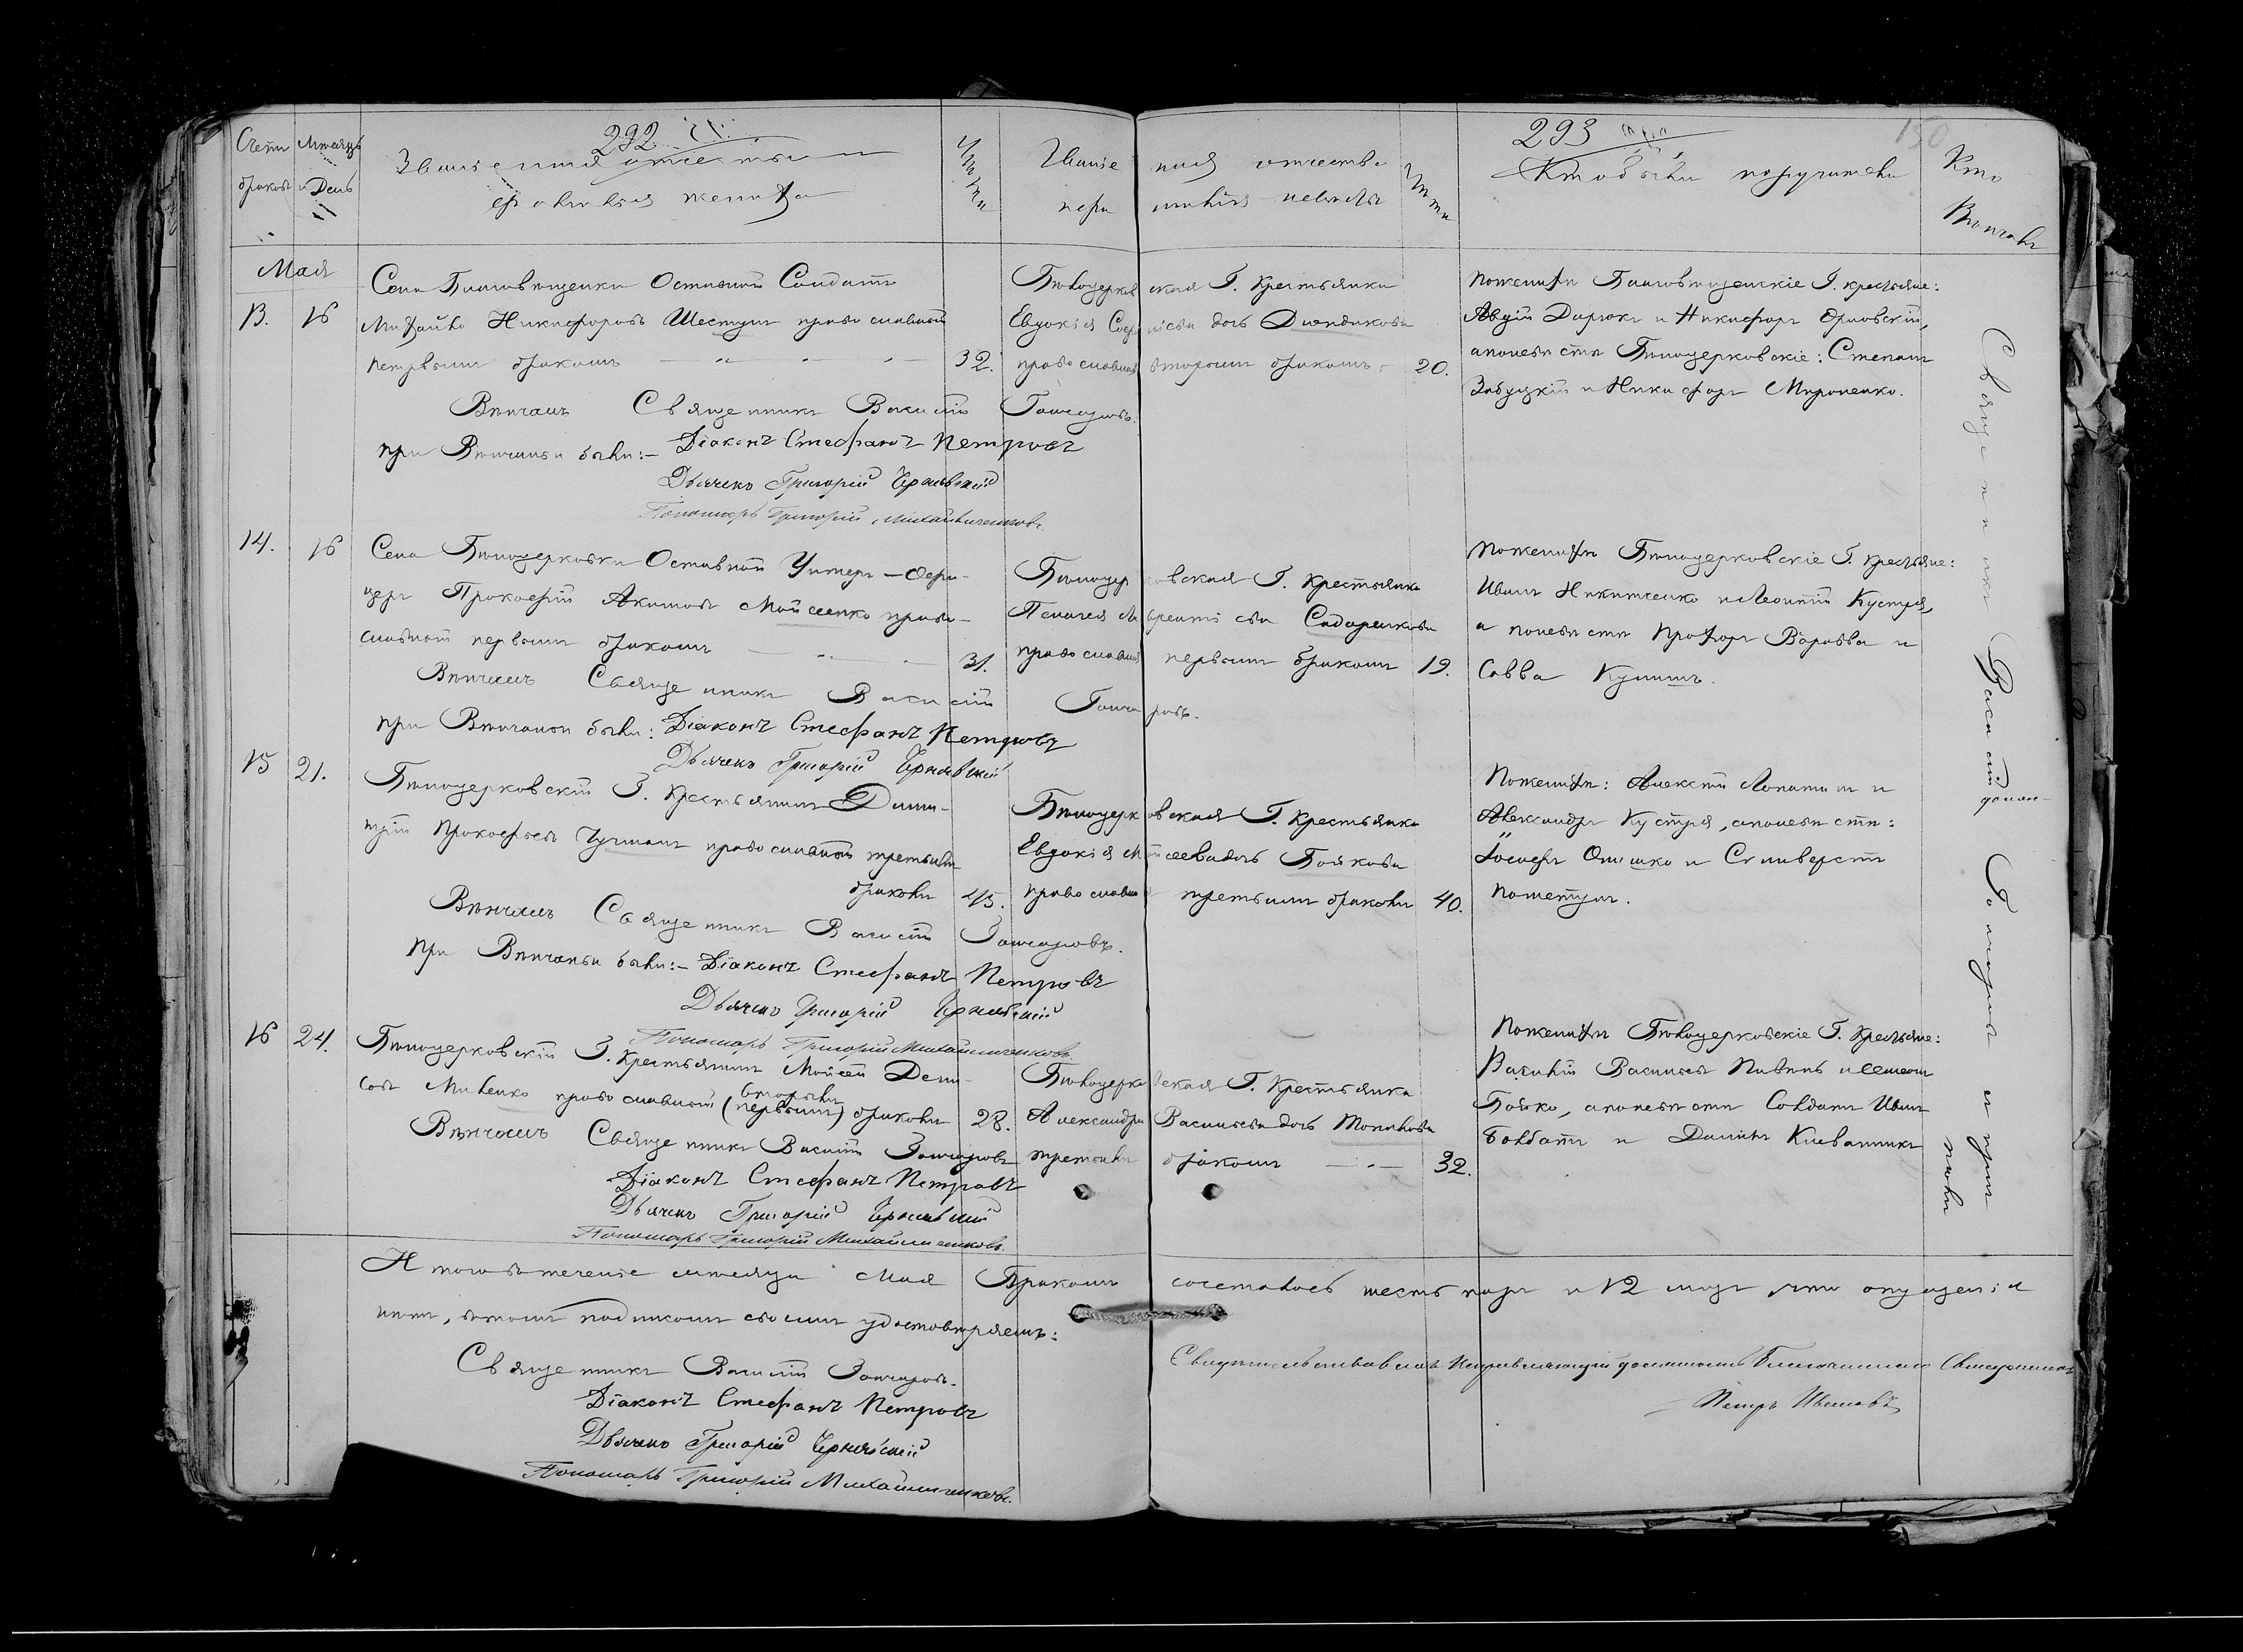 292
293
150
Счетъ браков Мѣсяцъ и День
Званіе имя отчество и
фамилія жениха
Лѣта
Званіе имя отчество
фамилія невѣсты
Лѣта
Кто были поручители
Кто
Вѣнчалъ
Мая
13. 16
Села Благовѣщенки Оставной Солдатъ
Михайло Никифоровъ Шестунъ православный
первымъ бракомъ 32.
Бѣлоцерковская Г. Крестьянка
Евдокія дочь
православная вторымъ бракомъ 20.
по женихѣ Благовѣщенскіе Г. крестьяне:
Авдій Дирюкъ и Никифоръ Орловскій,
а по невѣстѣ Бѣлоцерковскіе: Степанъ
и Никифоръ Мироненко.
Вѣнчалъ Священникъ Василій Гончаровъ.
при Вѣнчаніи были:- Діаконъ Стефанъ Петровъ
Дьячекъ Григорій Чернявскій
Пономарь Григорій Михайличенковъ
14. 16
Села Бѣлоцерковки Оставной Унтеръ-Офи-
церъ Прокофій Акимовъ Мойсеенко право-
славный первымъ бракомъ 31.
Бѣлоцерковская Г. Крестьянка
Пелагея Сидоренкова
православная первымъ бракомъ 19.
по женихѣ Бѣлоцерковскіе Г. Крестьяне:
Иванъ Никитченко и Леонтій Кустря,
а по невѣстѣ Прохоръ Воробва и
Савва Кушнъ.
Вѣнчалъ Священникъ Василій Гончаровъ.
при Вѣнчаніи были: Діаконъ Стефанъ Петровъ
Дьячекъ Григорій Чернявскій
15 21.
Бѣлоцерковскій Г. Крестьянинъ Дими-
трій Прокофьевъ Чучманъ православный третьимъ
бракомъ 45.
Бѣлоцерковская Г. Крестьянка
Евдокія Мойсеева дочь Бойкова
православная третьимъ бракомъ 40.
По женихѣ: Алексѣй Лопатинъ и
Александръ Кустря, а по невѣстѣ:
Іосифъ Онишко и Силиверстъ
Вѣнчалъ Священникъ Василій Гончаровъ.
При Вѣнчаніи были:- Діаконъ Стефанъ Петровъ
Дьячекъ Григорій Чернявскій
Пономарь Григорій Михайличенковъ
16 24.
Бѣлоцерковскій Г. Крестьянинъ Мойсей Дени-
совъ Миленко православный (первымъ) вторымъ бракомъ 28.
Бѣлоцерковская Г. Крестьянка
Александра Васильева дочь
третьимъ бракомъ 32.
По женихѣ Бѣлоцерковскіе Г. Крестьяне:
Василій Васильевъ Пивень и Семенъ
Бойко, а по невѣстѣ Солдатъ Иванъ
и Даніилъ
Вѣнчалъ Священникъ Василій Гончаровъ
Діаконъ Стефанъ Петровъ
Дьячекъ Григорій Чернявскій
Пономарь Григорій Михайличенковъ
Священникъ Василій Гончаровъ и при-
Итого въ теченіе мѣсяца Мая Бракомъ сочеталось шесть паръ и 12 лицъ что опущен; и
нѣтъ, въ томъ подпискою своимъ удостовѣряемъ:
Священникъ Василій Гончаровъ.
Діаконъ Стефанъ Петровъ
Дьячекъ Григорій Чернявскій
Пономарь Григорій Михайличенковъ.
Свидѣтельствовалъ Исправляющій должность Благочиннаго Священникъ
Петръ Ивановъ